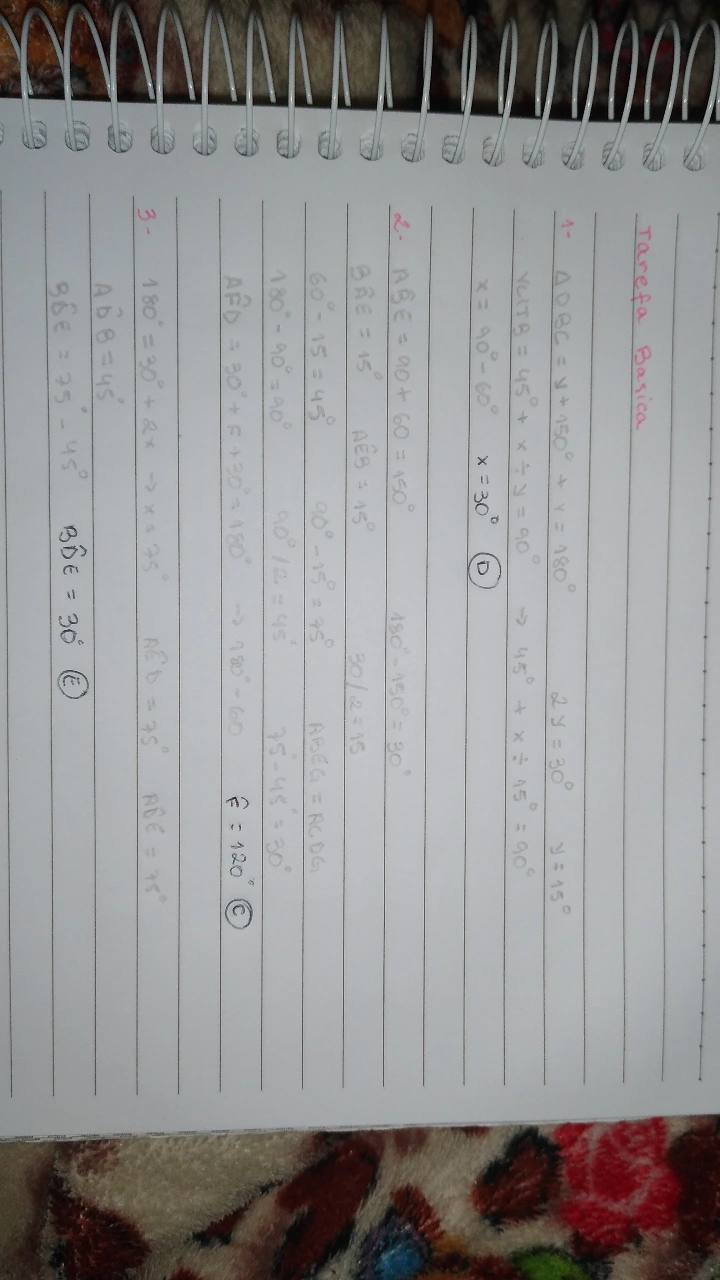 Tarefa Basica
1- Δ DBC = y + 150° + y = 180° 2y = 30° y = 15°
= 45° + x ÷ y = 90° → 45° + x ÷ 15° = 90°
x = 90° - 60° x = 30° D
2- AB̂E = 90 + 60 = 150° 180° - 150° = 30°
BÂE = 15° AÊB = 15° 30/2 = 15
60° - 15 = 45° 90° - 15° = 75°
180° - 90° = 90° 90°/2 = 45° 75° - 45° = 30°
AF̂D = 30° + F + 30° = 180° → 180° - 60 F̂ = 120° C
3- 180° = 30° + 2x → x = 75° AÊD = 75° AD̂E = 75°
AD̂B = 45°
BD̂E = 75° - 45° BD̂E = 30° E